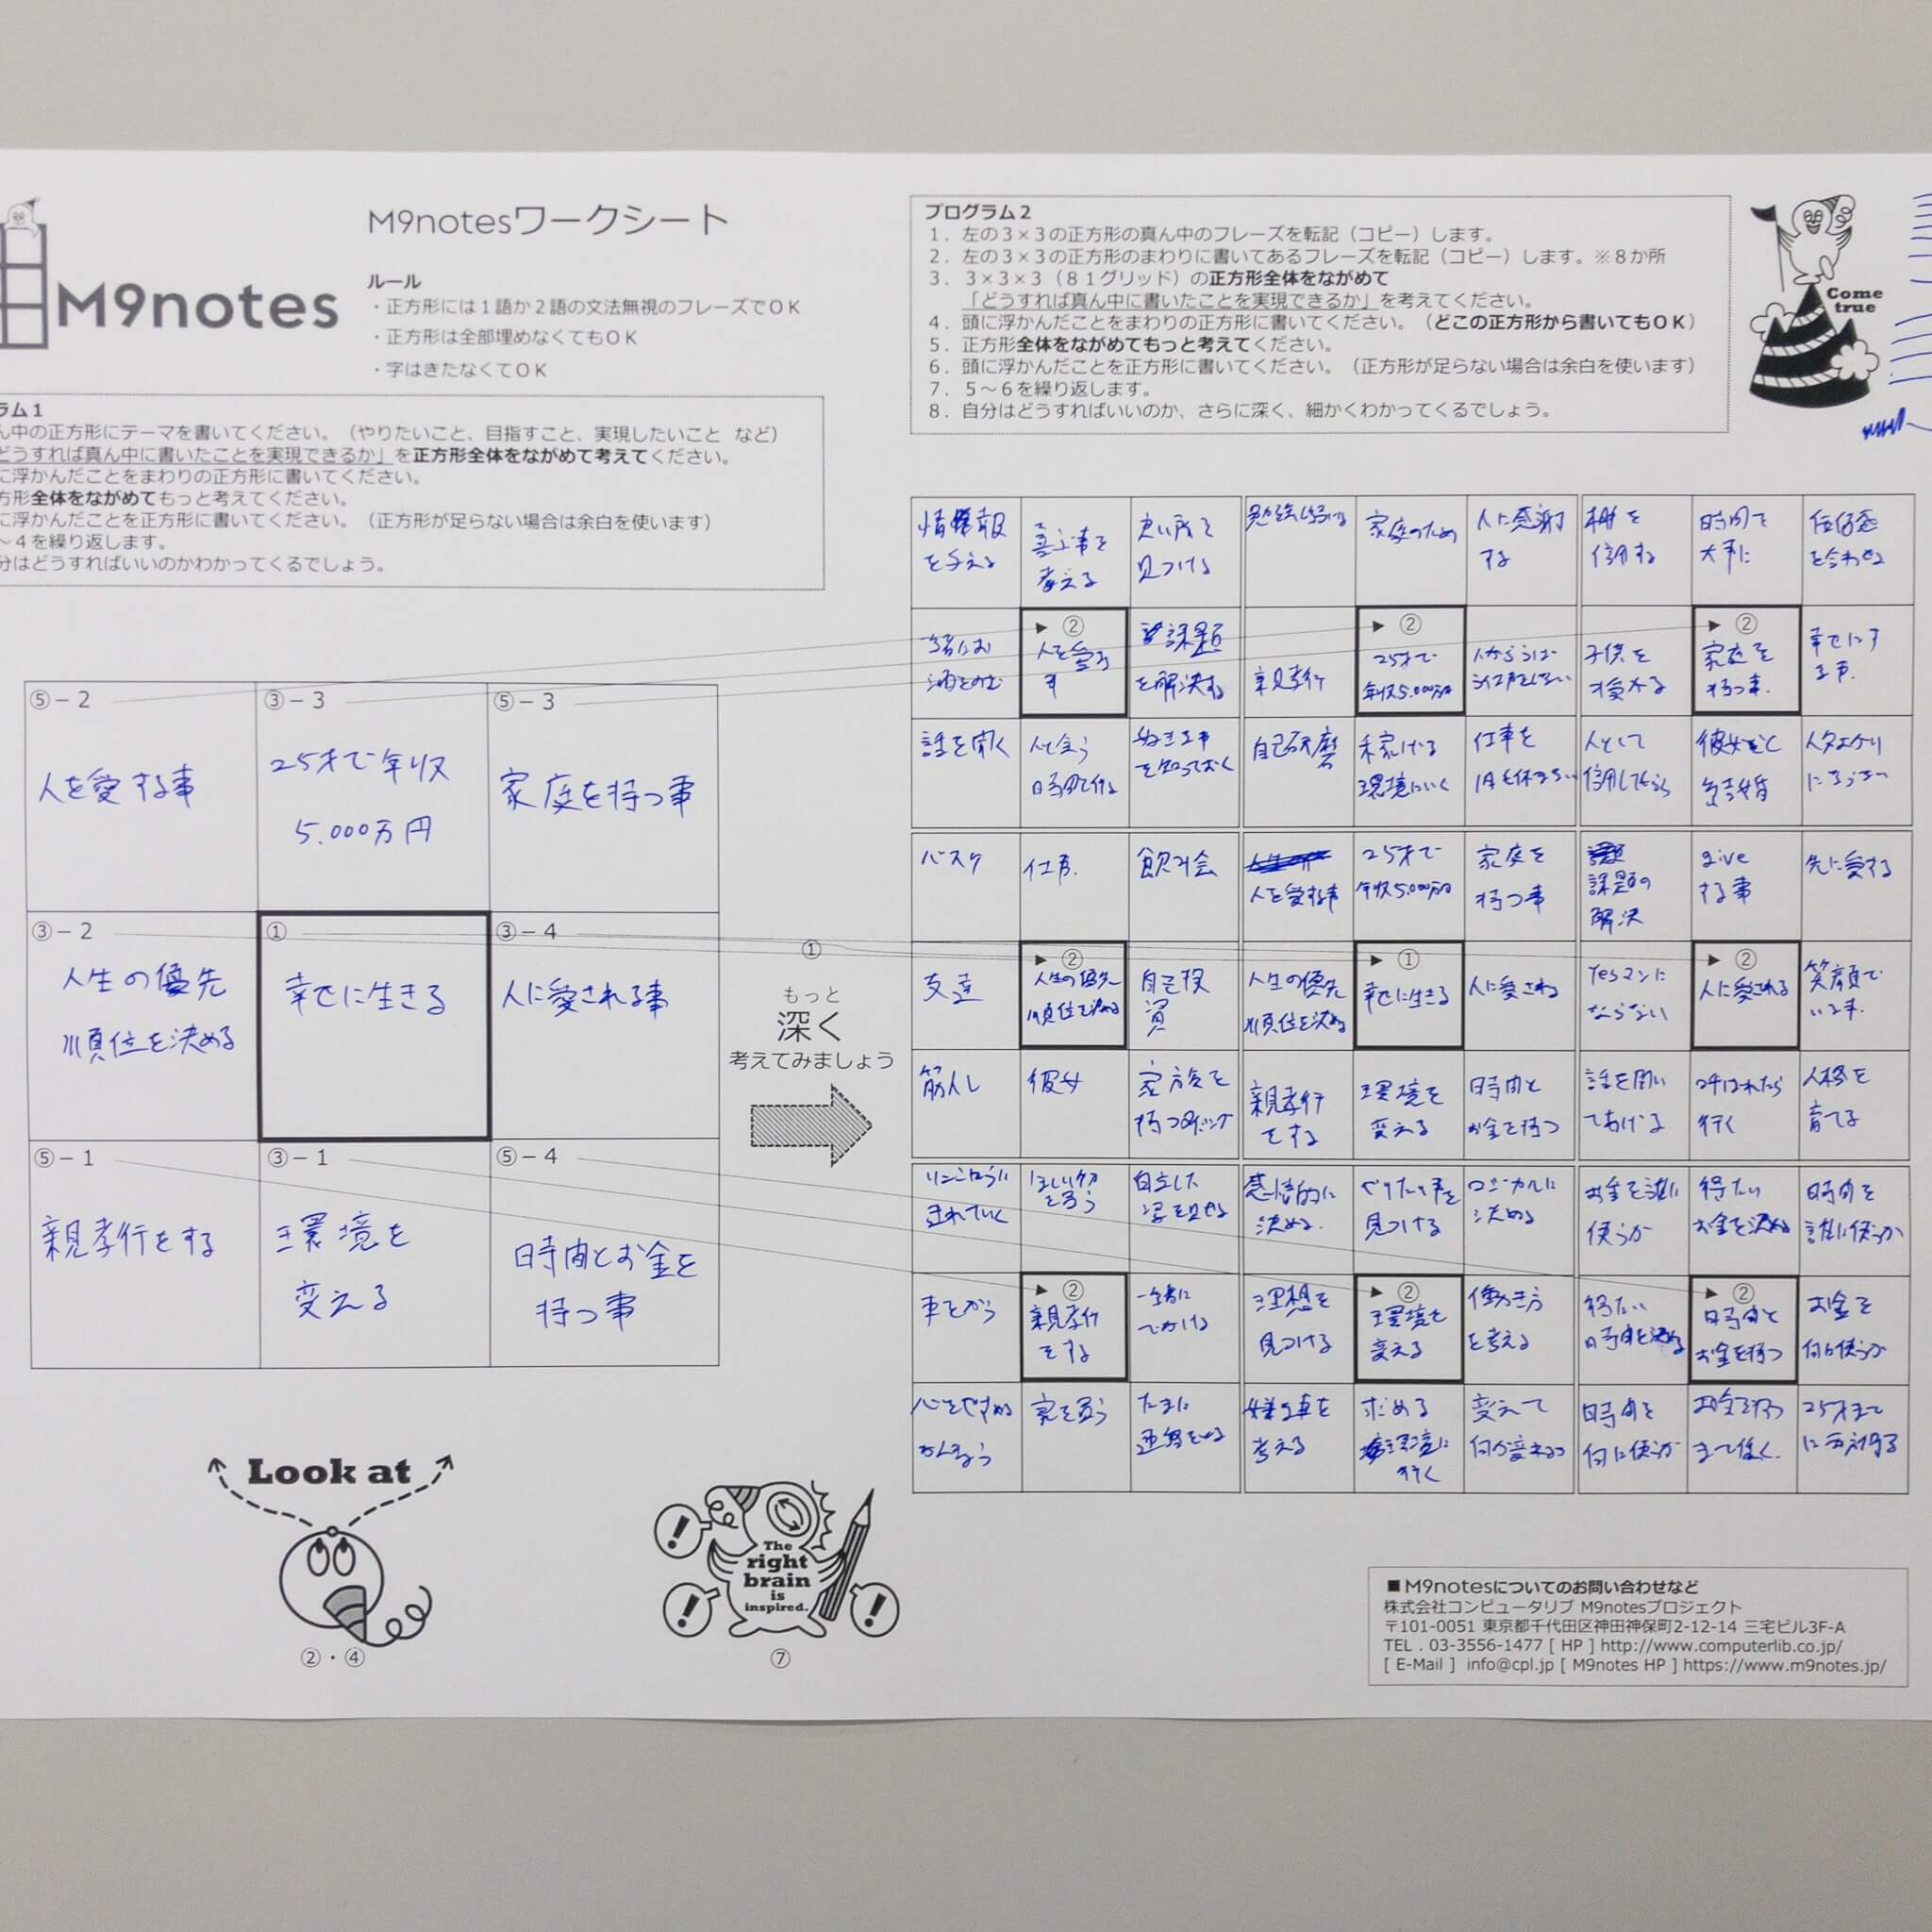 M9notes
M9notesワークシート
ルール
・正方形には１語か２語の文法無視のフレーズでＯＫ
・正方形は全部埋めなくてもＯＫ
・字はきたなくてＯＫ
ラム１
ん中の正方形にテーマを書いてください。（やりたいこと、目指すこと、実現したいこと など）
どうすれば真ん中に書いたことを実現できるか」を正方形全体をながめて考えてください。
に浮かんだことをまわりの正方形に書いてください。
方形全体をながめてもっと考えてください。
に浮かんだことを正方形に書いてください。（正方形が足らない場合は余白を使います）
～４を繰り返します。
分はどうすればいいのかわかってくるでしょう。
⑤－２
人を愛する事
③－３
25才で年収
5.000万円
⑤－３
家庭を持つ事
③－２
人生の優先
順位を決める
①
幸せに生きる
③－４
人に愛される事
⑤－１
親孝行をする
③－１
環境を
変える
⑤－４
時間とお金を
持つ事
①
もっと
深く
考えてみましょう
Look at
②・④
The
right
brain
is
inspired.
⑦
プログラム２
１．左の３×３の正方形の真ん中のフレーズを転記（コピー）します。
２．左の３×３の正方形のまわりに書いてあるフレーズを転記（コピー）します。※８か所
３．３×３×３（８１グリッド）の正方形全体をながめて
「どうすれば真ん中に書いたことを実現できるか」を考えてください。
４．頭に浮かんだことをまわりの正方形に書いてください。（どこの正方形から書いてもＯＫ）
５．正方形全体をながめてもっと考えてください。
６．頭に浮かんだことを正方形に書いてください。（正方形が足らない場合は余白を使います）
７．５～６を繰り返します。
８．自分はどうすればいいのか、さらに深く、細かくわかってくるでしょう。
Come
true
情報
を与える
喜ぶ事を
考える
良い所を
見つける
②
人を愛す
課題
を解決する
話を聞く
人と会う
家庭のため
人に感謝
する
②
25才で
年収5.000万円
親孝行
自己研磨
稼げる
環境にいく
仕事を
時間を
大事に
価値感
を合わせる
子供を
②
家庭を
持つ事.
人として
彼女と
結婚
バスケ
仕事.
飲み会
友達
②
人生の優先
順位を決める
自己投
資
筋トレ
彼女
家族を
持つタイミング
人を愛する事
25才で
年収5.000万円
家庭を
持つ事
人生の優先
順位を決める
①
幸せに生きる
人に愛される
親孝行
をする
環境を
変える
時間と
お金を持つ
課題の
解決
give
する事
先に愛する
Yesマンに
ならない
②
人に愛される
笑顔で
いる事.
話を聞い
てあげる
呼ばれたら
行く
人格を
育てる
ほしい物
を買う
自立した
姿を見せる
②
親孝行
をする
一緒に
でかける
家を買う
たまに
連絡をする
感情的に
決める.
やりたい事を
見つける
ロジカルに
決める
理想を
見つける
②
環境を
変える
働き方
を考える
嫌な事を
考える
求める
環境に
行く
変えて
何が変わるか
お金を誰に
使うか
得たい
お金を決める
時間を
誰に使うか
得たい
時間を決める
②
時間と
お金を持つ
お金を
何に使うか
時間を
何に使うか
■M9notesについてのお問い合わせなど
株式会社コンピュータリブ M9notesプロジェクト
〒101-0051 東京都千代田区神田神保町2-12-14 三宅ビル3F-A
TEL．03-3556-1477 [ HP ] http://www.computerlib.co.jp/
[ E-Mail ] info@cpl.jp [ M9notes HP ] https://www.m9notes.jp/